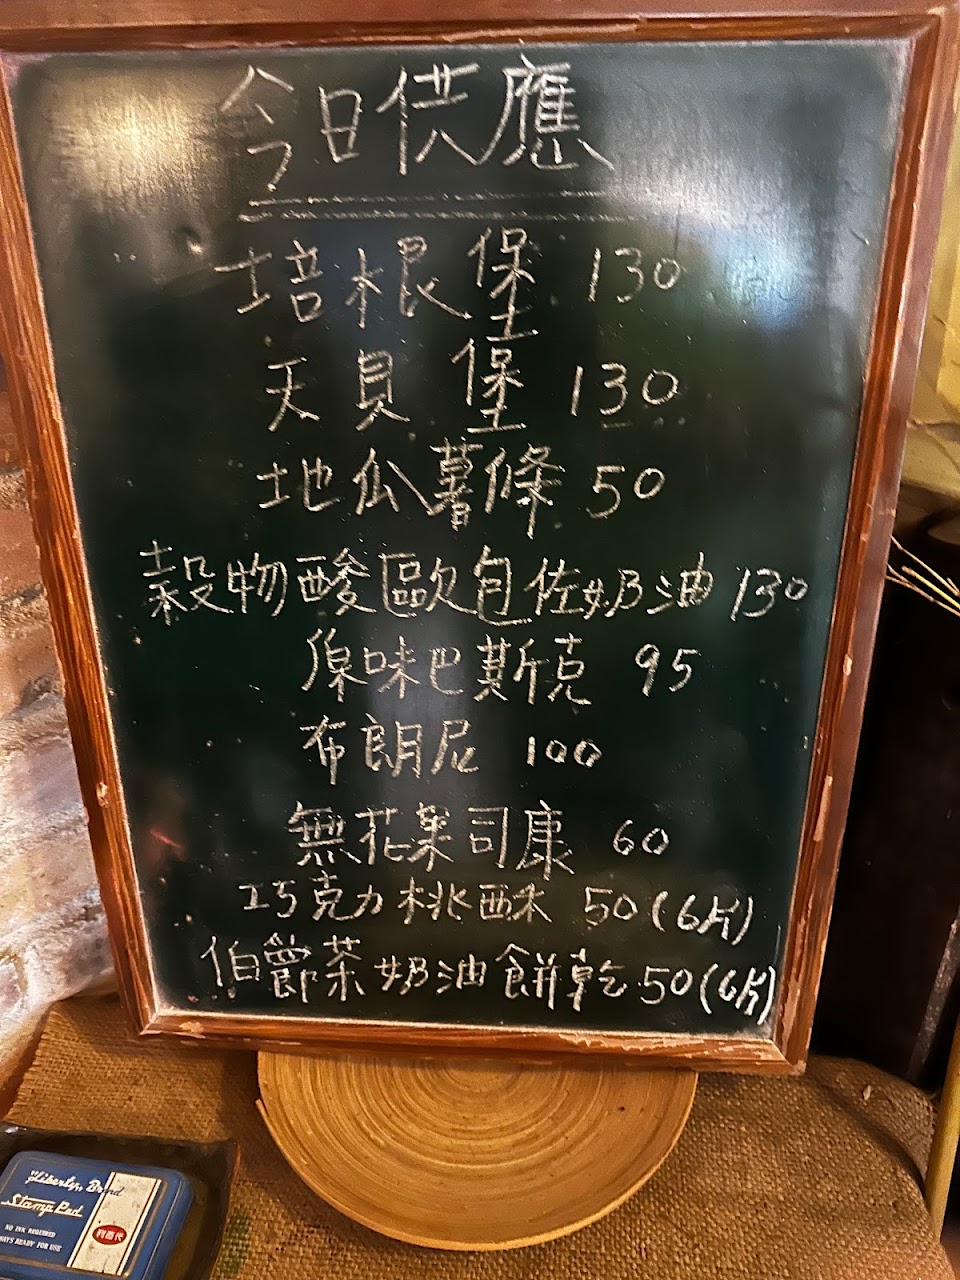 今日供應
培根堡 130
天貝堡 130
地瓜薯條 50
穀物酸歐包佐奶油 130
原味巴斯克 95
布朗尼 100
無花果司康 60
巧克力桃酥 50(6片)
伯爵茶奶油餅乾 50(6片)
"Liberty" Brand
Stamp Pad
NO INK REQUIRED
ALWAYS READY FOR USE